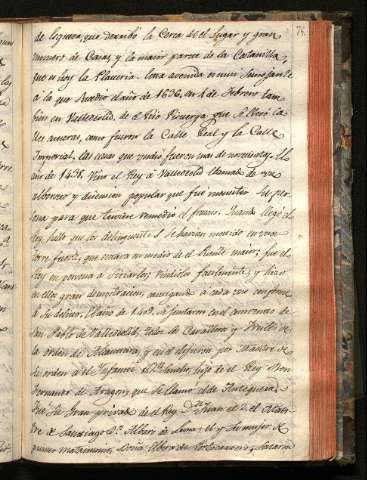 78
de leguea, que derribó la Cerca de el Lugar y gran
numero de Casas y la maior parte de la Costanilla,
que es hoy la Plateria. Esta avenida es mui semejante
à la que sucedio el año de 1636, en 4 de Febrero tam
bien en Valladolid, de el Rio Pisuerga, que
como fueron la Calle Real y la Calle
Imperial, las casas que
año de 1438. Vino el Rey à Valladolid llamado de un
alboroto y disension popular que fue menester su per
sona para que tuviere remedio el Quando llegó el
Rey halló que los delinquentes se havian metido en una
torre fuerte, que estaba en medio de el Puente maior; fue el
Rey en persona à rindiólos facilmente, y hizo
en ellos gran demostracion, castigando à cada uno conforme
à su delito. El año de 1409. se juntaron en el convento de
San Pablo de Valladolid, todos los Cavalleros y Freiles de
la orden de Alcantara, y en el eligieron por Maestre de
su orden à el Infante D.n Sancho, hijo de el Rey Don
Fernando de Aragon, que se llamó el de Antequera.
Fué su gran privado de el Rey D.n Juan el 2. el Maes
tre de Santiago D.n Albaro de Luna: él y su muger de
primer matrimonio, Doña Elbira de Portocarrero, sacaron